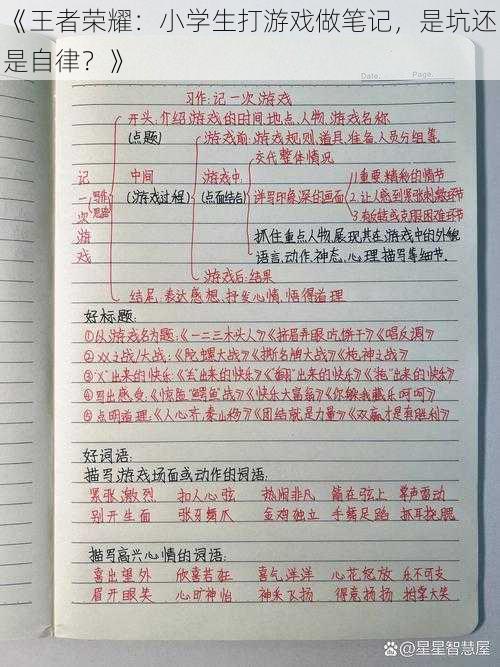 《王者荣耀：小学生打游戏做笔记，是坑还
是自律？》
Date.
Page.
习作:记一次游戏
开头:介绍游戏的时间、地点、人物、游戏名称
(点题)
游戏前:游戏规则、道具、准备、人员分组等.
交代整体情况
记一次游戏
写作思路
中间
(游戏过程)
游戏中
(点面结合)
详写印象深的画面
1 重要、精彩的情节
2 让人感到紧张刺激环节
3 有波转或克服困难环节
抓住重点人物,展现其在游戏中的外貌
语言、动作、神态、心理描写等细节.
游戏后:结果
结尾:表达感想、抒发心情、悟得道理
好标题:
①以游戏名为题:《一二三木头人》《挤眉弄眼吃饼干》《唱反调》
②XX之战/大战:《陀螺大战》《撕名牌大战》《枕"神之战》
③"X"出来的快乐:《"丢"出来的快乐》《"翻"出来的快乐》《"抢"出来的快乐》
④写出感受:《惊险"鳄鱼"战》《快乐大富翁》《你躲我藏乐呵呵》
⑤点明道理:《人心齐,泰山移》《团结就是力量》《双赢才是真胜利》
好词语:
描写游戏场面或动作的词语:
紧张激烈 扣人心弦 热闹非凡 箭在弦上 掌声雷动
别开生面 张牙舞爪 金鸡独立 手舞足蹈 抓耳挠腮
描写高兴心情的词语:
喜出望外 欣喜若狂 喜气洋洋 心花怒放 乐不可支
眉开眼笑 心旷神怡 神采飞扬 得意扬扬 捧腹大笑
@星星智慧屋